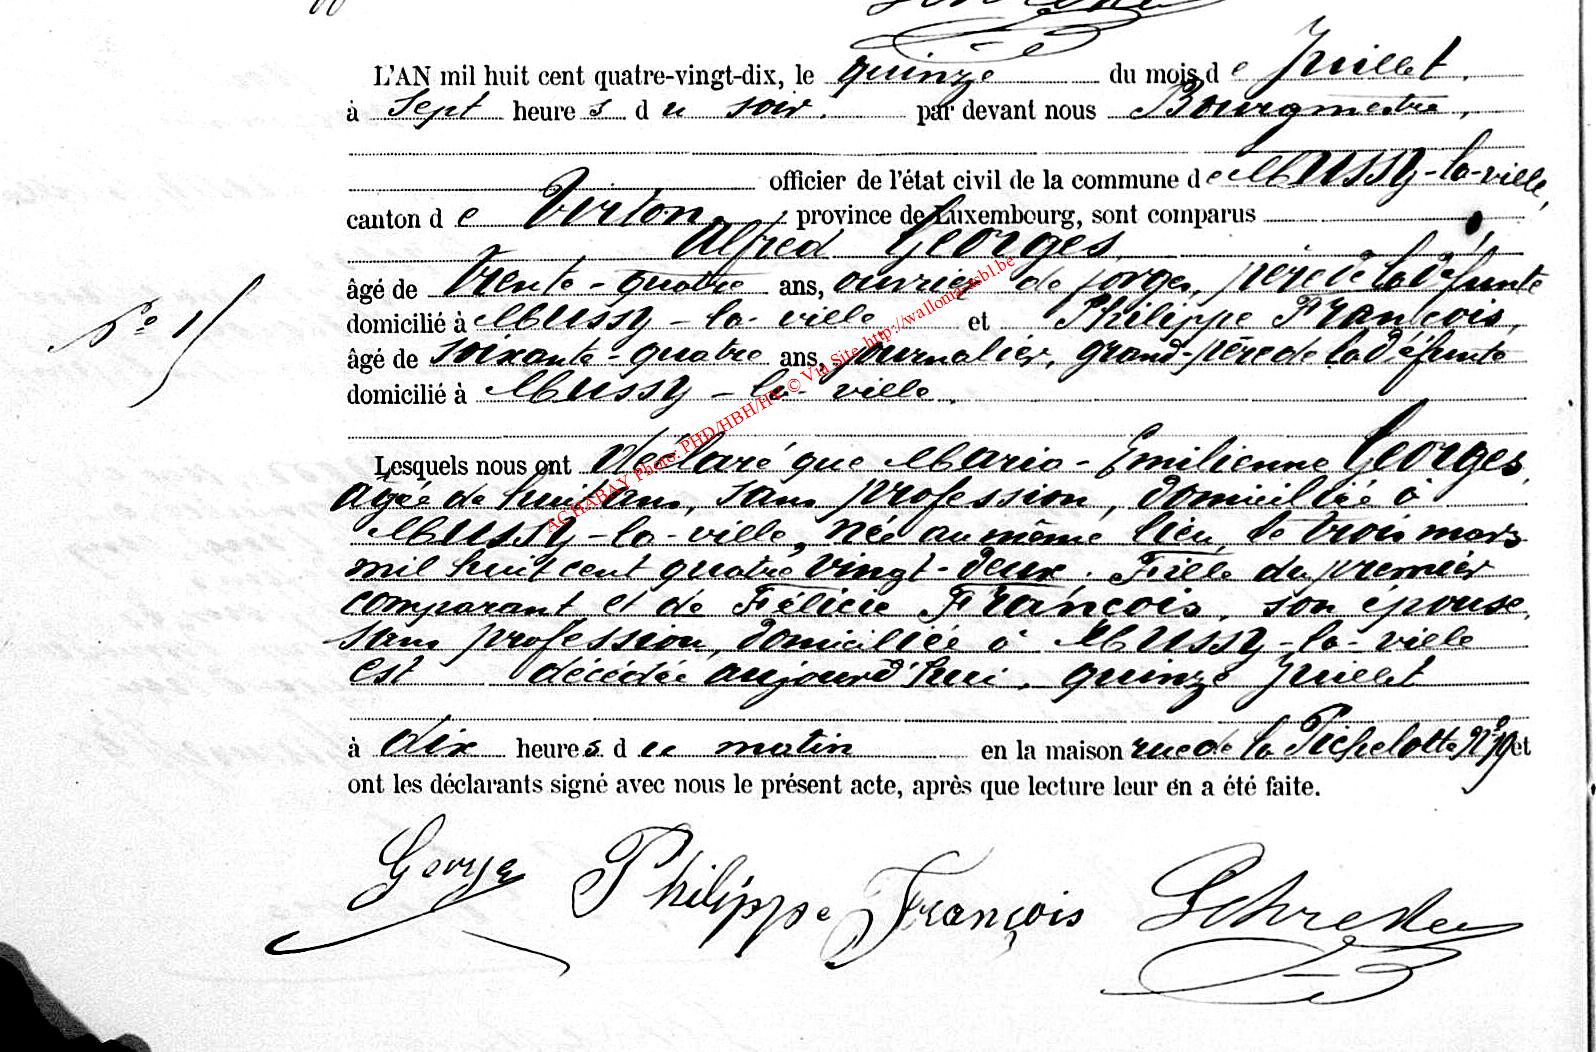 L'AN mil huit cent quatre-vingt-dix, le quinze du mois de Juillet,
à sept heures du soir. par devant nous Bourgmestre,
officier de l'état civil de la commune de Mussy-la-ville,
canton de Virton, province de Luxembourg, sont comparus
Alfred Georges,
âgé de trente-quatre ans, ouvrier de forges, père de la défunte
domicilié à Mussy-la-ville et Philippe François,
âgé de soixante-quatre ans, journalier, grand-père de la défunte
domicilié à Mussy-la-ville.
N° 15
Lesquels nous ont déclaré que Marie-Emilienne Georges,
âgée de huit ans, sans profession, domiciliée à
Mussy-la-ville, née au même lieu, le trois mars
mil huit cent quatre vingt-deux, Fille du premier
comparant et de Félicie François, son épouse,
sans profession, domiciliée à Mussy-la-ville
est décédée aujourd'hui, quinze Juillet
à dix heures du matin en la maison rue de la Pichelotte N° 79 et
ont les déclarants signé avec nous le présent acte, après que lecture leur en a été faite.
Georges Philippe François
AC HABAY Photo: PHD/HBH/HY © Via Site http://wallonia-asbl.be